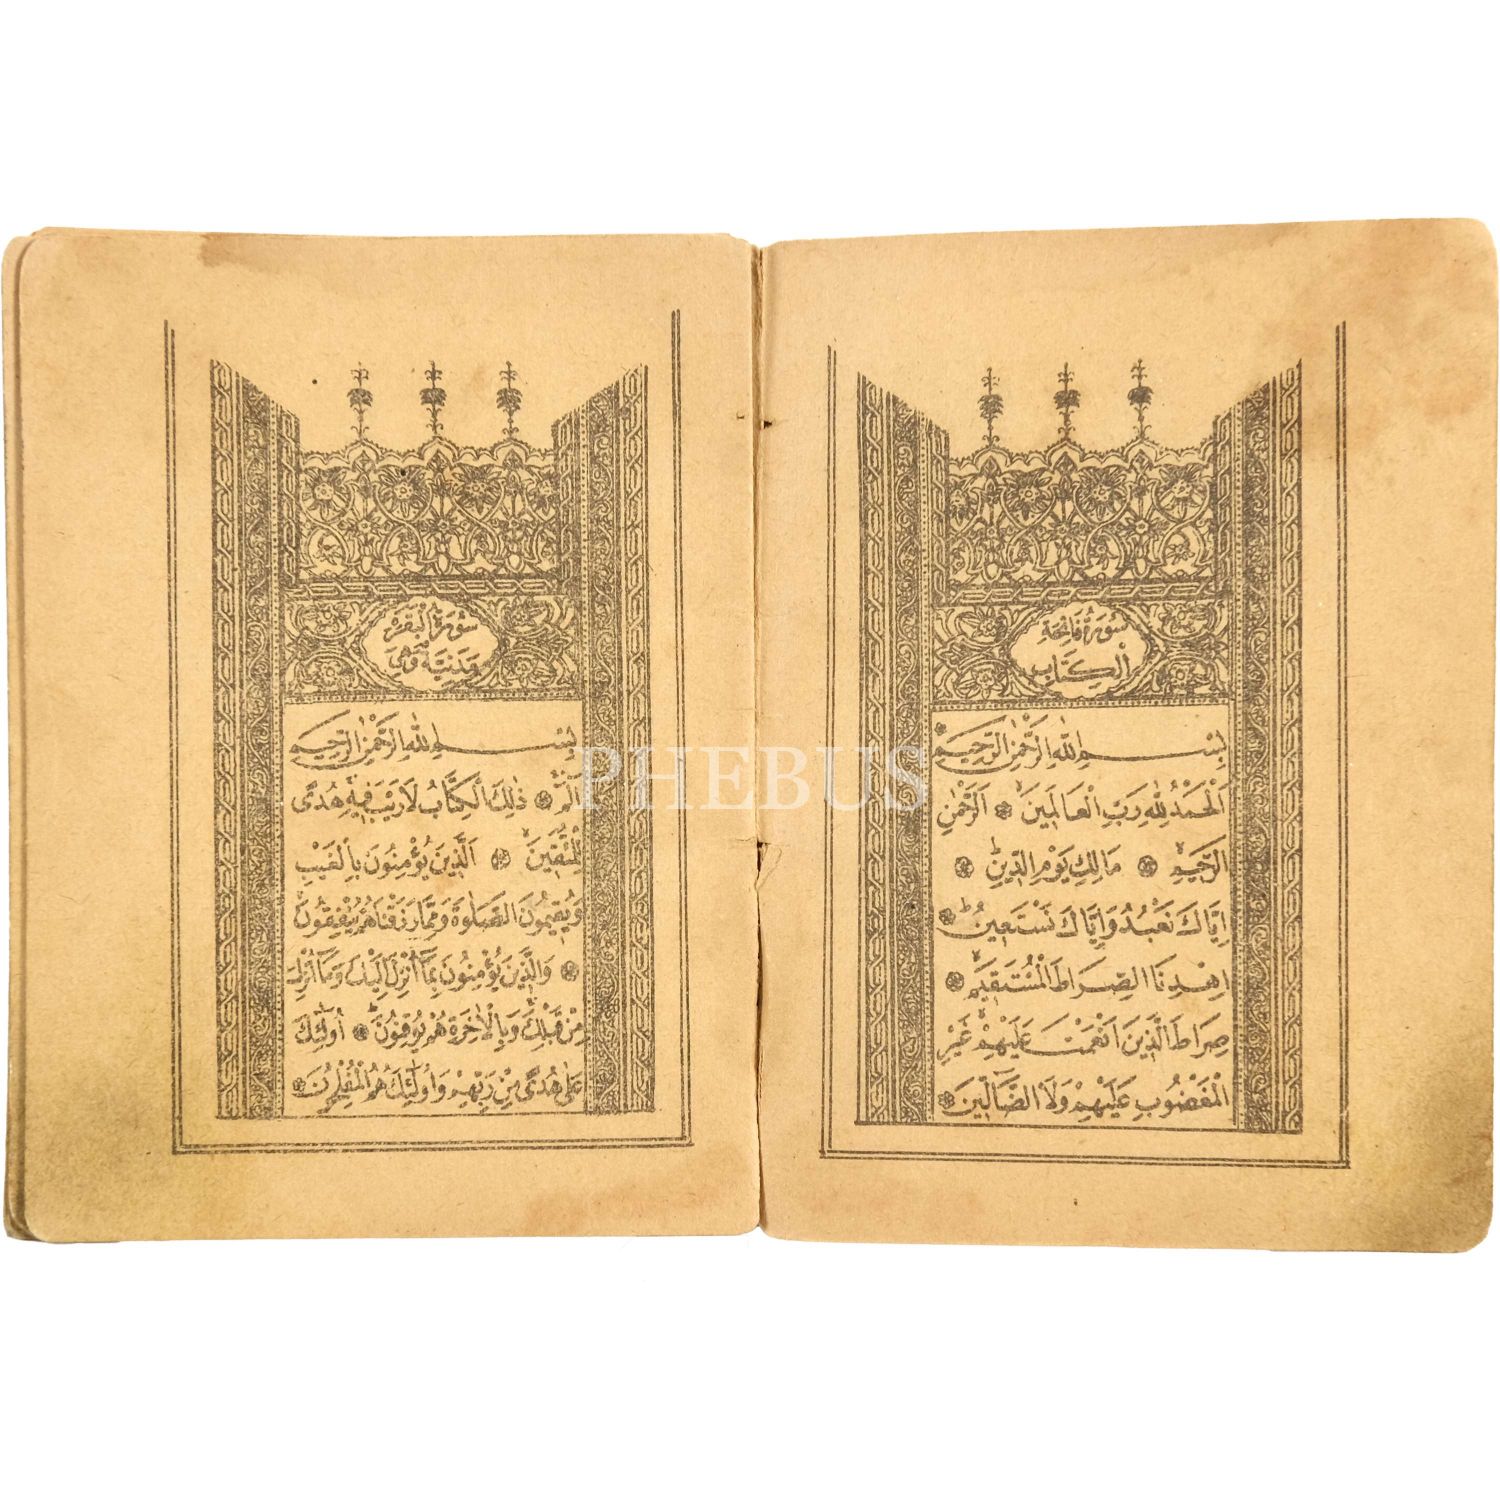 سُورَةُ فَاتِحَةِ
الْكِتَابِ
بِسْمِ اللهِ الرَّحْمٰنِ الرَّحِيمِ
اَلْحَمْدُ لِلّٰهِ رَبِّ الْعَالَمِينَ الرَّحْمٰنِ
الرَّحِيمِ مَالِكِ يَوْمِ الدِّينِ
اِيَّاكَ نَعْبُدُ وَاِيَّاكَ نَسْتَعِينُ
اِهْدِنَا الصِّرَاطَ الْمُسْتَقِيمَ
صِرَاطَ الَّذِينَ اَنْعَمْتَ عَلَيْهِمْ غَيْرِ
الْمَغْضُوبِ عَلَيْهِمْ وَلَا الضَّالِّينَ
سُورَةُ الْبَقَرَةِ
مَدَنِيَّةٌ وَهِيَ
بِسْمِ اللهِ الرَّحْمٰنِ الرَّحِيمِ
الٓمٓ ذٰلِكَ الْكِتَابُ لَا رَيْبَ فِيهِ هُدًى
لِلْمُتَّقِينَ الَّذِينَ يُؤْمِنُونَ بِالْغَيْبِ
وَيُقِيمُونَ الصَّلٰوةَ وَمِمَّا رَزَقْنَاهُمْ يُنْفِقُونَ
وَالَّذِينَ يُؤْمِنُونَ بِمَا اُنْزِلَ اِلَيْكَ وَمَا اُنْزِلَ
مِنْ قَبْلِكَ وَبِالْاٰخِرَةِ هُمْ يُوقِنُونَ اُولٰئِكَ
عَلٰى هُدًى مِنْ رَبِّهِمْ وَاُولٰئِكَ هُمُ الْمُفْلِحُونَ
PHEBUS